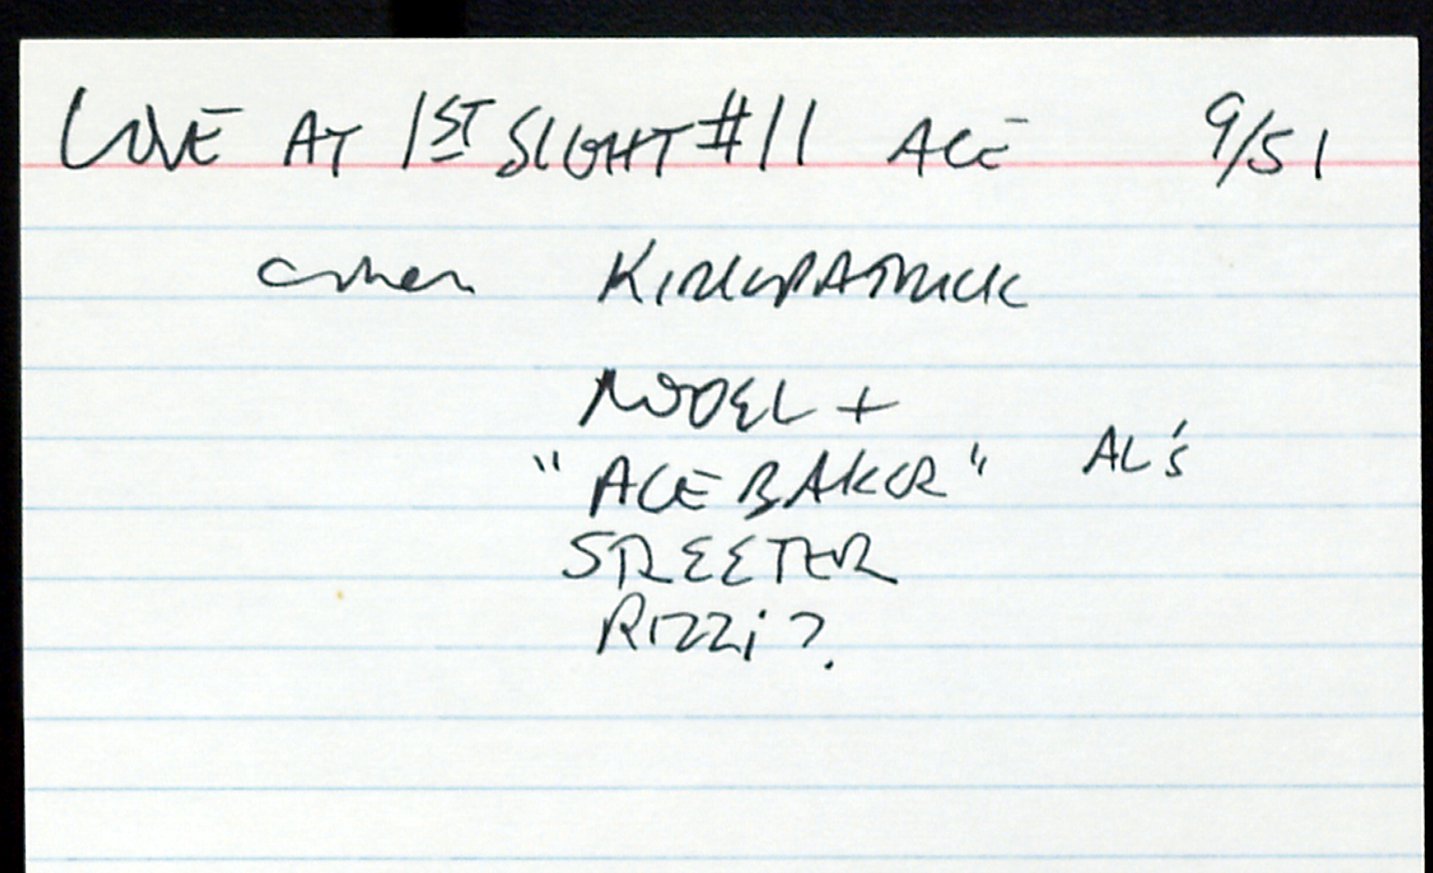 LOVE AT 1ST SIGHT #11 ACE 9/51
cover KIRKPATRICK
MODEL +
"ACE BAKER" AL's
STREETER
RIZZI?